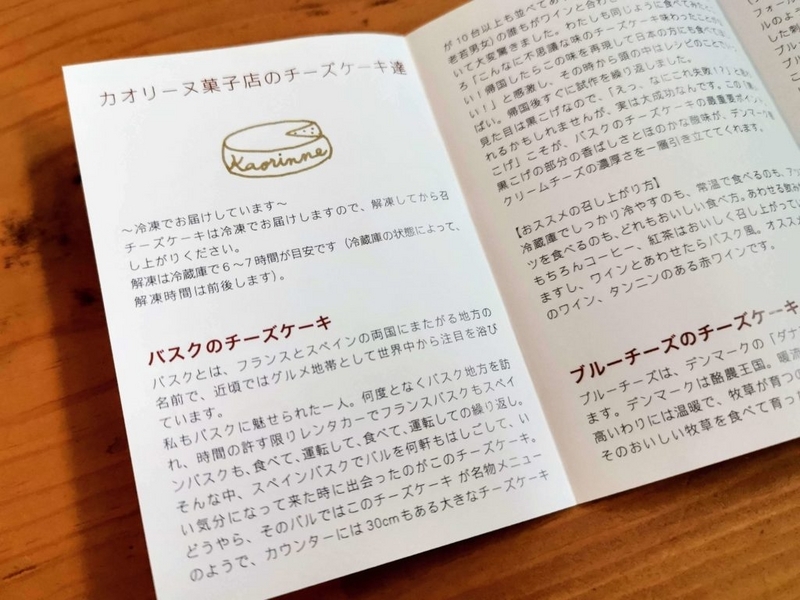 カオリーヌ菓子店のチーズケーキ達
Kaorinne
～冷凍でお届けしています～
チーズケーキは冷凍でお届けしますので、解凍してから召
し上がりください。
解凍は冷蔵庫で6～7時間が目安です（冷蔵庫の状態によって、
解凍時間は前後します）。
バスクのチーズケーキ
バスクとは、フランスとスペインの両国にまたがる地方の
名前で、近頃ではグルメ地帯として世界中から注目を浴び
ています。
私もバスクに魅せられた一人。何度となくバスク地方を訪
れ、時間の許す限りレンタカーでフランスバスクもスペイ
ンバスクも、食べて、運転して、食べて、運転しての繰り返し。
そんな中、スペインバスクでバルを何軒もはしごして、い
い気分になって来た時に出会ったのがこのチーズケーキ。
どうやら、そのバルではこのチーズケーキ が名物メニュー
のようで、カウンターには30cmもある大きなチーズケーキ
が10台以上も並べてあ
老若男女)の誰もがワインと合わ
いて大変驚きました。わたしも同じように食べてみた
ろ「こんなに不思議な味のチーズケーキ味わったこと
い！帰国したらこの味を再現して日本の方にも食べて
い！」と感激し、その時から頭の中はレシピのことでい
ぱい。帰国後すぐに試作を繰り返しました。
見た目は黒こげなので、「えっ、なにこれ失敗！？」と思
れるかもしれませんが、実は大成功なんです。この「黒
こげ」こそが、バスクのチーズケーキの最重要ポイン
黒こげの部分の香ばしさとほのかな酸味が、デンマーク
クリームチーズの濃厚さを一層引き立ててくれます。
【おススメの召し上がり方】
冷蔵庫でしっかり冷やすのも、常温で食べるのも、アツ
ツを食べるのも、どれもおいしい食べ方。あわせる飲み
もちろんコーヒー、紅茶はおいしく召し上がってい
ますし、ワインとあわせたらバスク風。オススメ
のワイン、タンニンのある赤ワインです。
ブルーチーズのチーズケーキ
ブルーチーズは、デンマークの「ダナ
ます。デンマークは酪農王国。暖流
高いわりには温暖で、牧草が育つの
そのおいしい牧草を食べて育っ
フォー
ルのよ
した刺
ブル
ブル